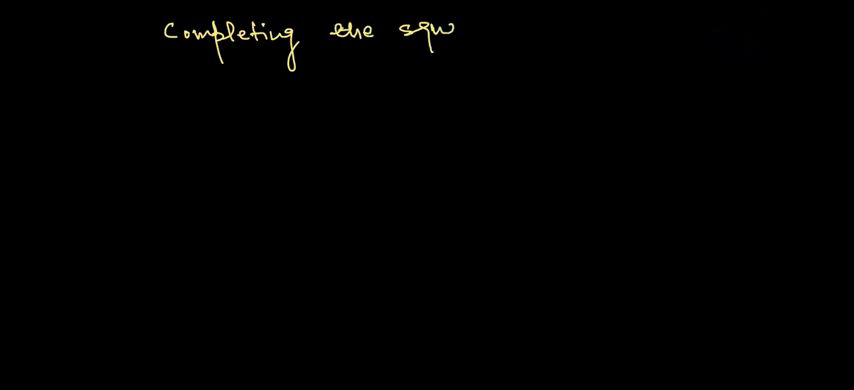 Completing the squ